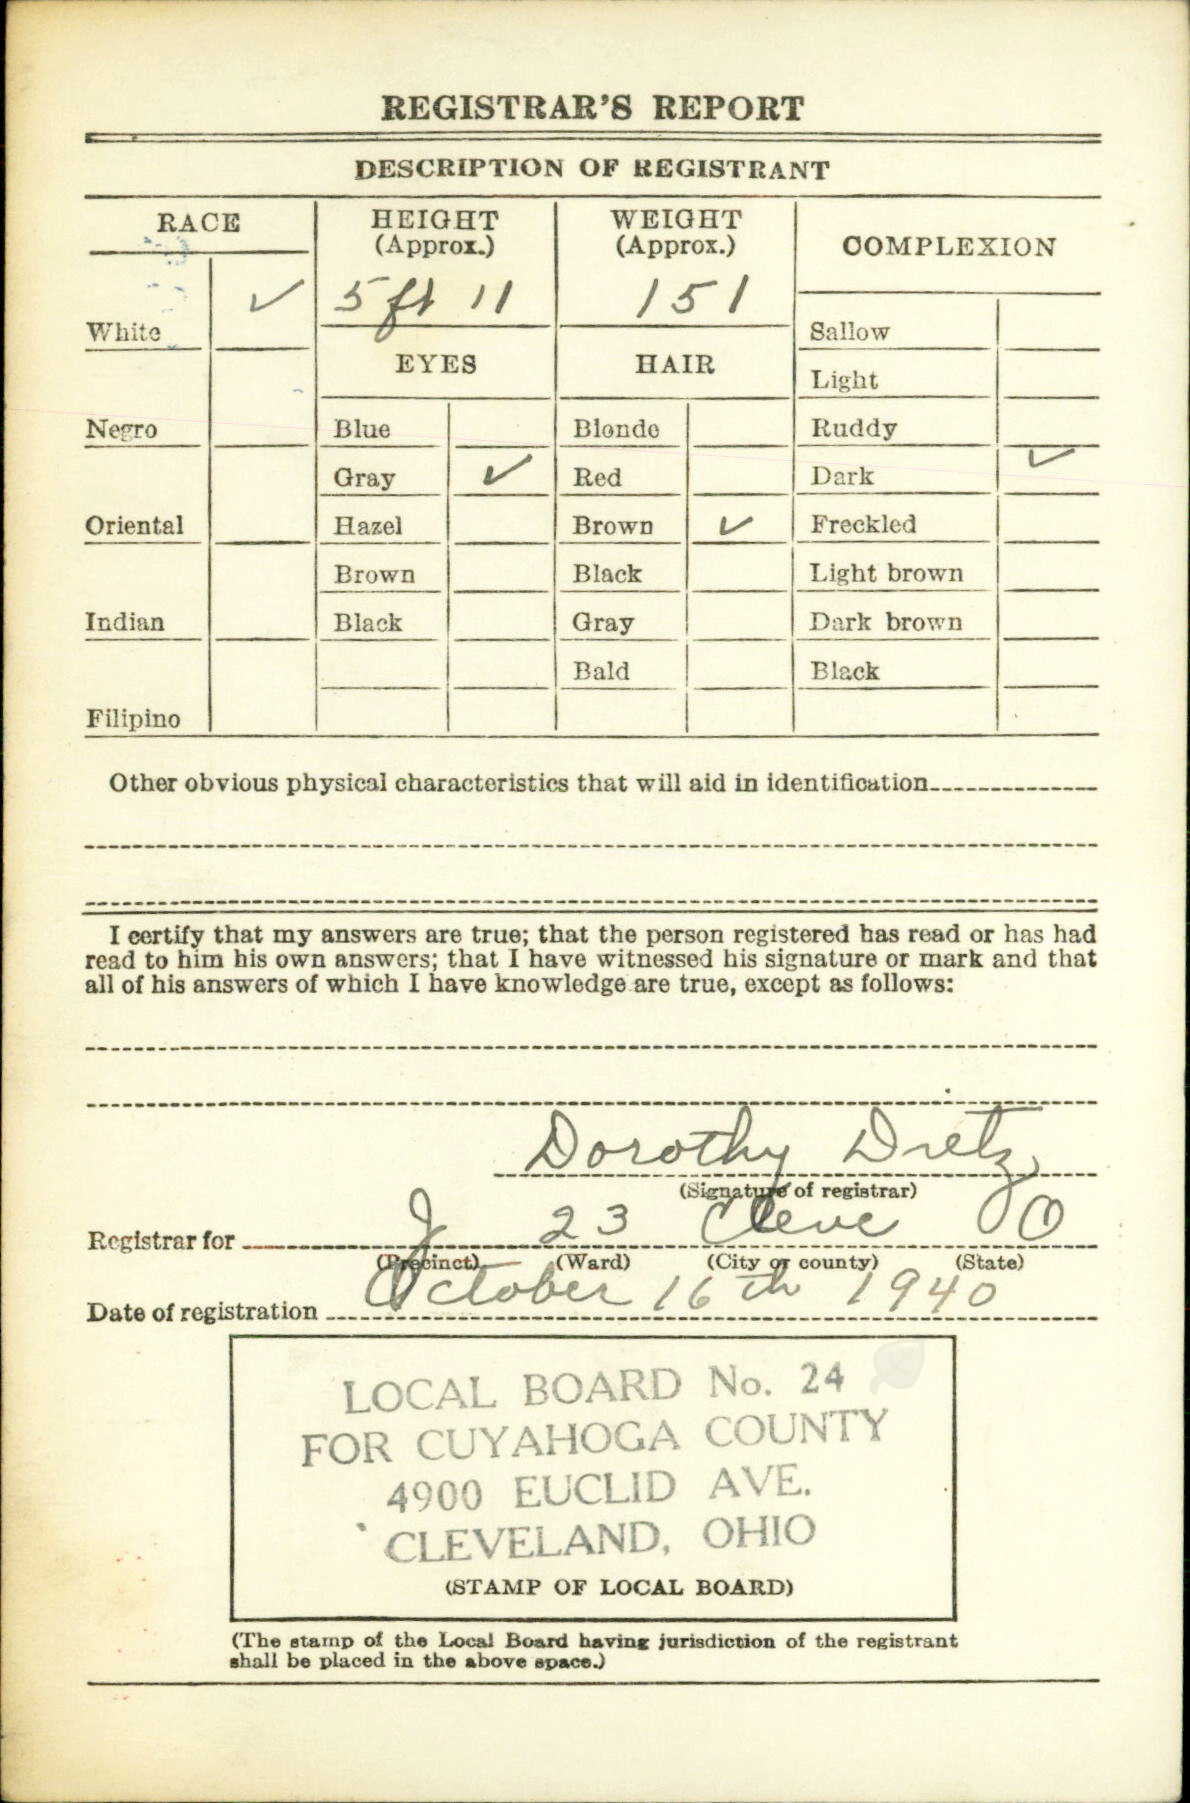 REGISTRAR'S REPORT
DESCRIPTION OF REGISTRANT
RACE
White ✓
Negro
Oriental
Indian
Filipino
HEIGHT
(Approx.)
5 ft 11
WEIGHT
(Approx.)
151
EYES
Blue
Gray ✓
Hazel
Brown
Black
HAIR
Blonde
Red
Brown ✓
Black
Gray
Bald
COMPLEXION
Sallow
Light
Ruddy
Dark ✓
Freckled
Light brown
Dark brown
Black
Other obvious physical characteristics that will aid in identification
I certify that my answers are true; that the person registered has read or has had
read to him his own answers; that I have witnessed his signature or mark and that
all of his answers of which I have knowledge are true, except as follows:
Dorothy Dietz
(Signature of registrar)
Registrar for J 23 Cleve O
(Precinct) (Ward) (City or county) (State)
Date of registration October 16th 1940
LOCAL BOARD No. 24
FOR CUYAHOGA COUNTY
4900 EUCLID AVE.
CLEVELAND, OHIO
(STAMP OF LOCAL BOARD)
(The stamp of the Local Board having jurisdiction of the registrant
shall be placed in the above space.)